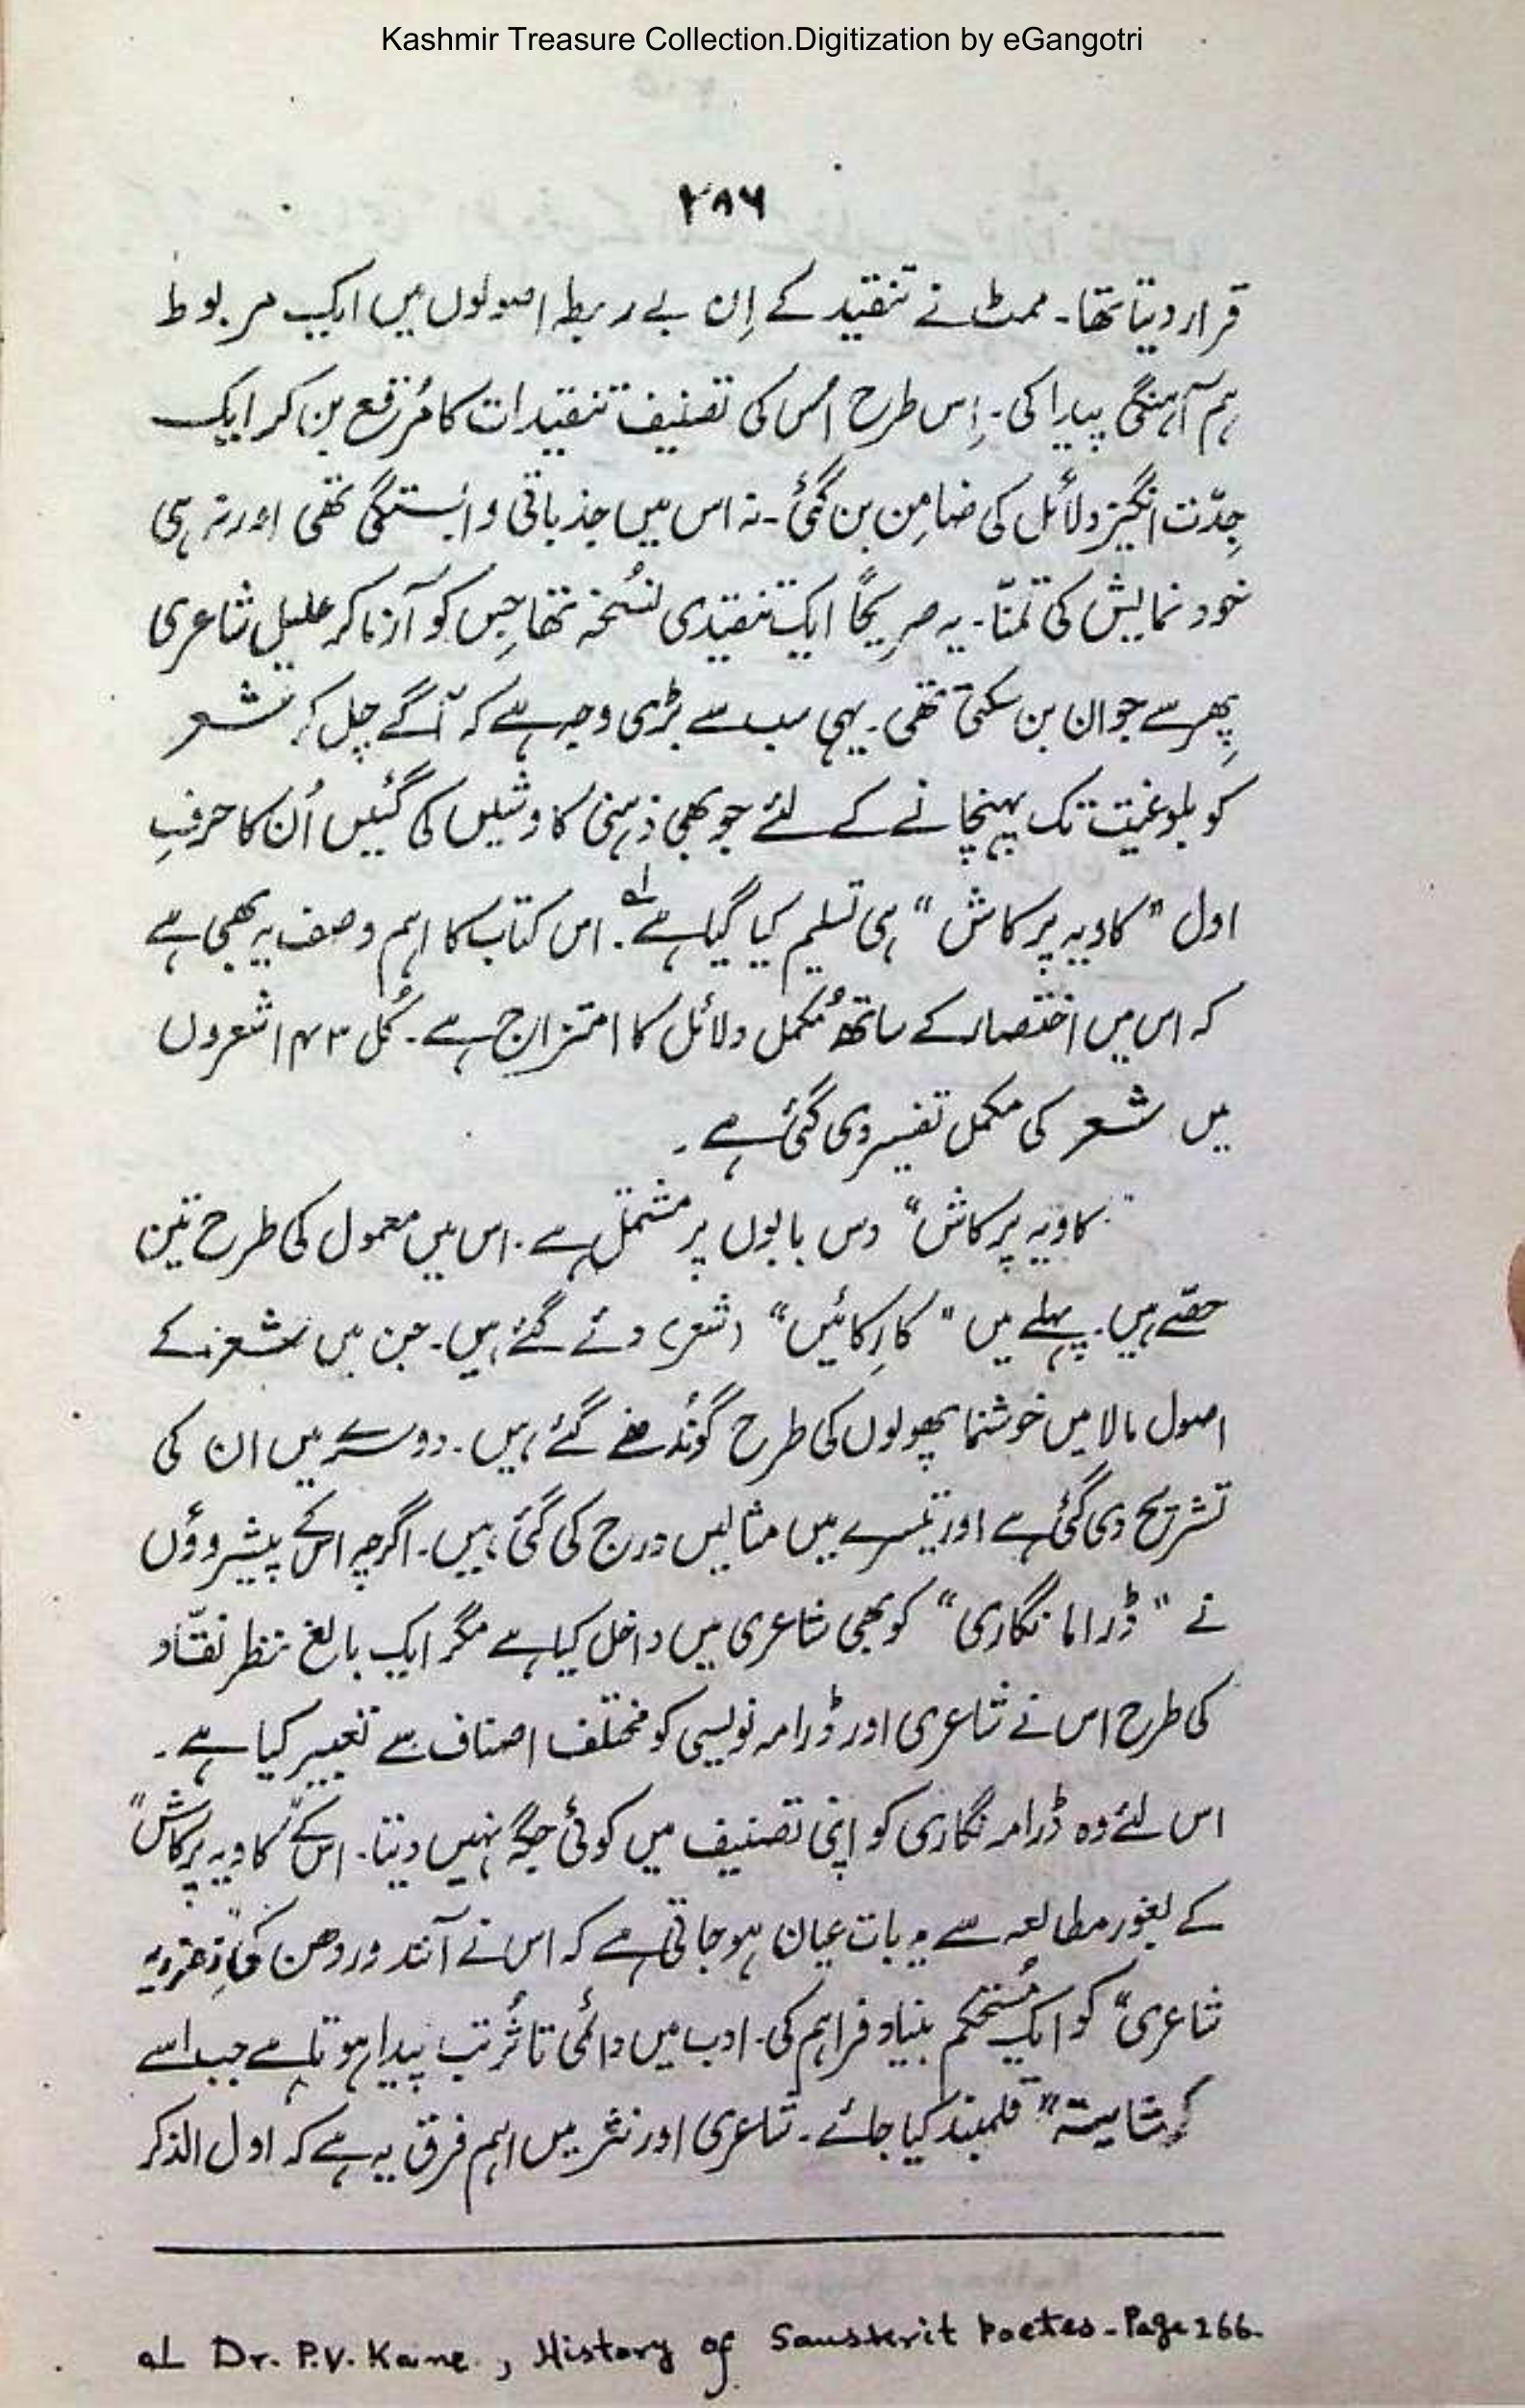 Kashmir Treasure Collection.Digitization by eGangotri
۲۸۶
قرار دیتا تھا۔ ممٹ نے تنقید کے اِن بے ربط اصولوں میں ایک مربوط
ہم آہنگی پیدا کی۔ اِس طرح اُس کی تصنیف تنقیدات کا مُرقع بن کر ایک
جِدّت انگیز دلائل کی ضامِن بن گئی۔ نہ اس میں جذباتی وابستگی تھی اور نہ ہی
خود نمایش کی تمنّا۔ یہ صریحاً ایک تنقیدی نسُخہ تھا جِس کو آزما کر علیل شاعری
پھِر سے جوان بن سکتی تھی۔ یہی سب سے بڑی وجہ ہے کہ آگے چل کر شعر
کو بلوغیت تک پہنچانے کے لئے جو بھی ذہنی کاوشیں کی گئیں اُن کا حرفِ
اول "کاویہ پرکاش" ہی تسلیم کیا گیا ہے۔ ؎۱ اس کتاب کا اہم وصف یہ بھی ہے
کہ اس میں اختصار کے ساتھ مُکمل دلائل کا امتزاج ہے۔ کُل ۱۴۳ شعروں
میں شعر کی مکمل تفسیر دی گئی ہے۔
"کاویہ پرکاش" دس بابوں پر مشتمل ہے۔ اس میں معمول کی طرح تین
حصّے ہیں۔ پہلے میں "کارِکائیں" (شعر) دئے گئے ہیں۔ جن میں شعر کے
اصول مالا میں خوشنما پھولوں کی طرح گوُندھے گئے ہیں۔ دوسرے میں ان کی
تشریح دی گئی ہے اور تیسرے میں مثالیں درج کی گئی ہیں۔ اگرچہ اسکے پیشروؤں
نے "ڈراما نگاری" کو بھی شاعری میں داخل کیا ہے مگر ایک بالغ نظر نقّاد
کی طرح اس نے شاعری اور ڈرامہ نویسی کو مختلف اصناف سے تعبیر کیا ہے۔
اس لئے وہ ڈرامہ نگاری کو اپنی تصنیف میں کوئی جگہ نہیں دیتا۔ اسکے "کاویہ پرکاش"
کے بغور مطالعہ سے یہ بات عیان ہو جاتی ہے کہ اس نے آنند وردھن کی
شاعری" کو ایک مُستحکم بنیاد فراہم کی۔ ادب میں دائمی تاثُر تب پیدا ہوتا ہے جب اسے
شایستہ" قلمبند کیا جائے۔ شاعری اور نثر میں اہم فرق یہ ہے کہ اول الذکر
؎۱ Dr. P.V. Kane, History of Sanskrit Poetes - Page 266.